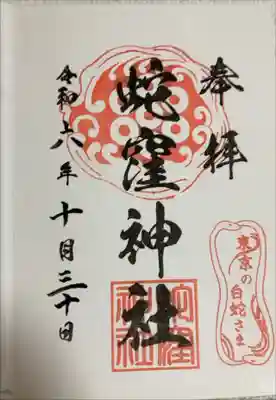 奉拝
蛇窪神社
令和六年十月三十日
東京の
白蛇さま
蛇窪
神社